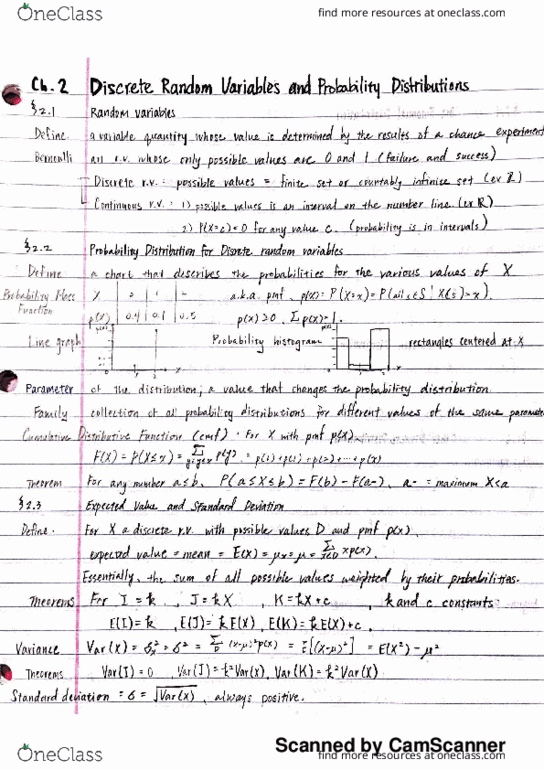 OneClass
find more resources at oneclass.com
Ch. 2 Discrete Random Variables and Probability Distributions
§2.1 Random variables
Define a variable quantity whose value is determined by the results of a chance experiment
Bernoulli an r.v. whose only possible values are 0 and 1 (failure and success)
Discrete r.v.: possible values = finite set or countably infinite set (ex ℤ)
Continuous r.v.: 1) possible values is an interval on the number line. (ex ℝ)
2) P(X=c)=0 for any value c. (probability is in intervals)
§2.2 Probability Distribution for Discrete random variables
Define a chart that describes the probabilities for the various values of X
Probability Mass X 0 1 a.k.a. pmf p(x) = P(X=x) = P(all s∈S: X(s)=x).
Function p(x) 0.4 0.1 0.5 p(x)≥0, Σp(x)=1.
Line graph Probability histogram rectangles centered at X
Parameter of the distribution; a value that changes the probability distribution
Family collection of all probability distributions for different values of the same parameter
Cumulative Distributive Function (cmf) · For X with pmf p(x),
F(X) = P(X≤x) = Σ p(y) = p(0)+p(1)+p(2)+...+p(x)
Theorem For any number a≤b, P(a≤X≤b) = F(b)-F(a-), a- = maximum X<a
§2.3 Expected Value and Standard Deviation
Define · For X a discrete r.v. with possible values D and pmf p(x),
expected value = mean = E(X) = μx = μ = Σ x∈D xp(x).
Essentially, the sum of all possible values weighted by their probabilities.
Theorems For I = k, J = kX, K = kX+c, k and c constants
E(I) = k, E(J) = kE(X), E(K) = kE(X)+c.
Variance Var(x) = σx² = σ² = Σ D (x-μ)²p(x) = E[(X-μ)²] = E(X²)-μ²
Theorems Var(I) = 0 Var(J) = k²Var(X), Var(K) = k²Var(X)
Standard deviation = σ = √Var(x), always positive.
Scanned by CamScanner
OneClass
find more resources at oneclass.com